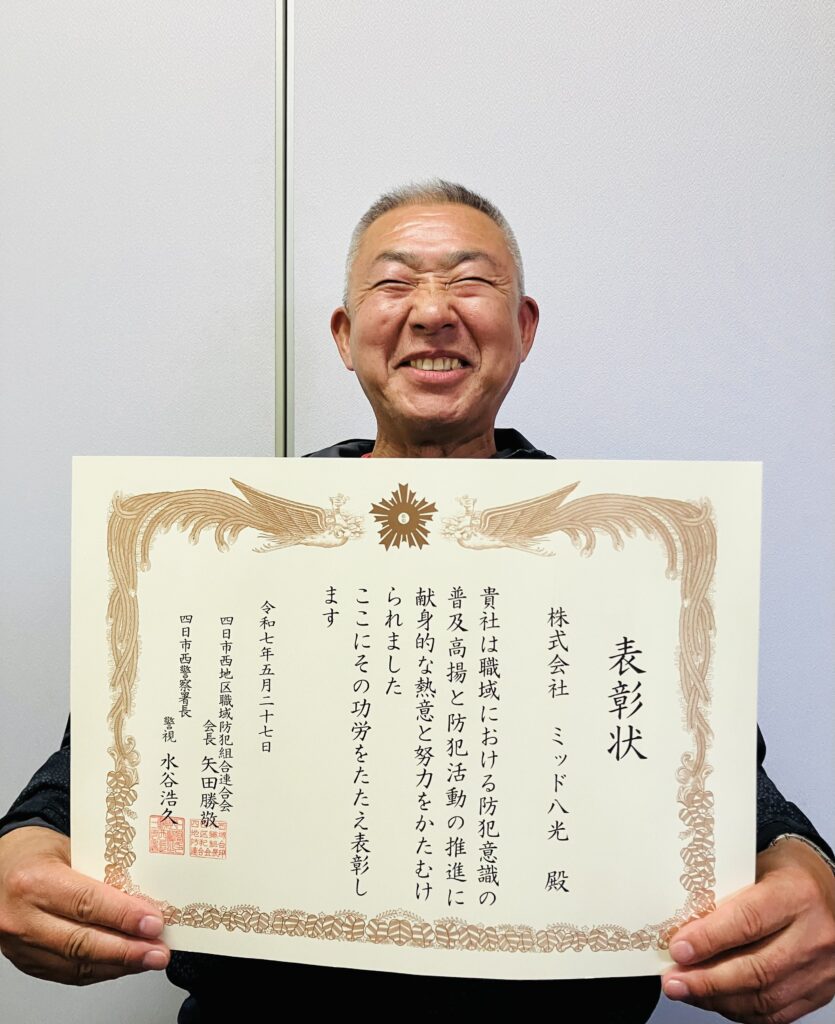 表彰状
株式会社 ミッド八光 殿
貴社は職域における防犯意識の
普及高揚と防犯活動の推進に
献身的な熱意と努力をかたむけ
られました
ここにその功労をたたえ表彰し
ます
令和七年五月二十七日
四日市西地区職域防犯組合連合会
会長 矢田勝敬
四日市西警察署長
警視 水谷浩久